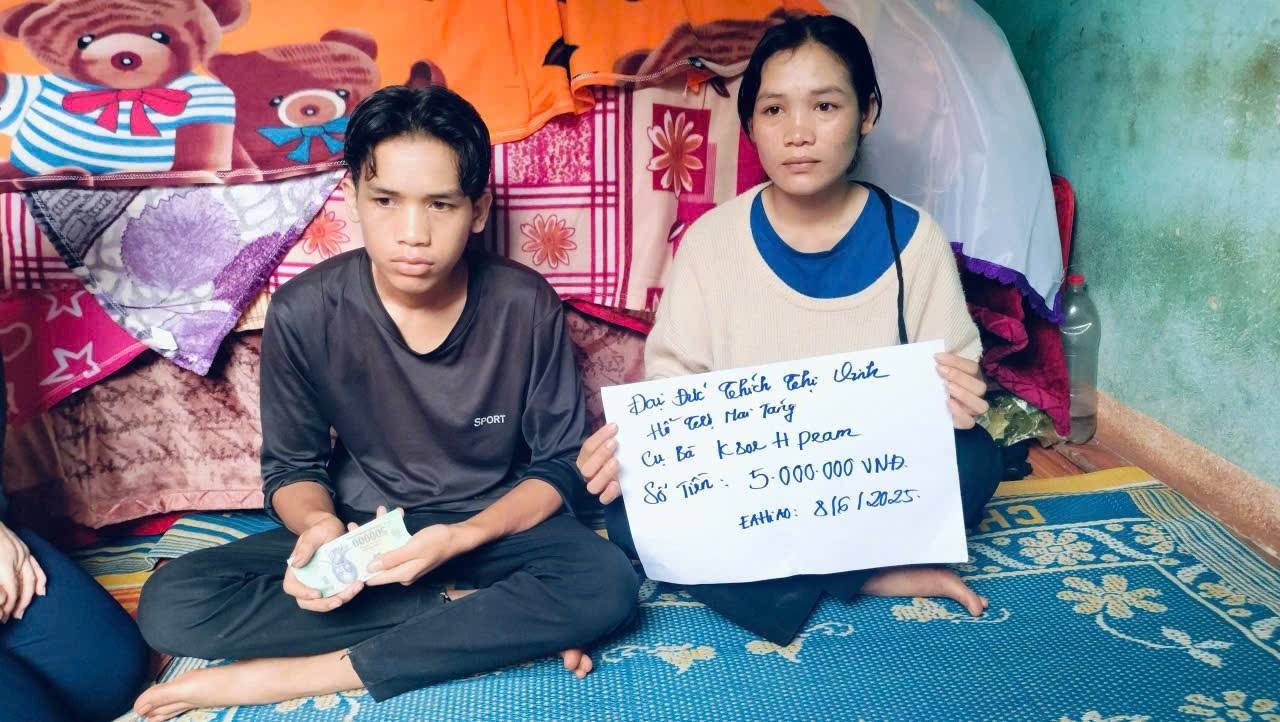 Đại Đức Thích Thị
Hỗ Trợ Mai Táng
Cụ Bà Ksor H
Số Tiền: 5.000.000 VNĐ.
EAHIAO: 8/6/2025.
SPORT